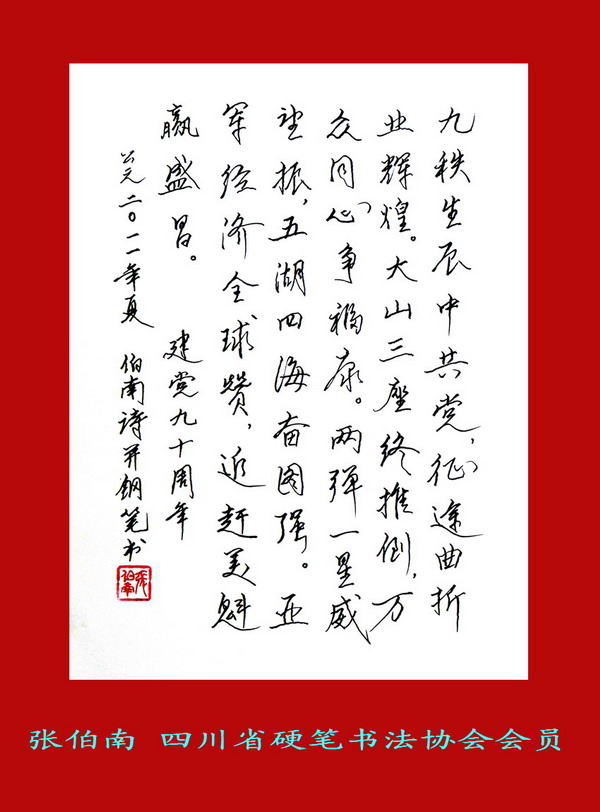 九秩生辰中共党，征途曲折
业辉煌。大山三座终推倒，万
众同心争福康。两弹一星威
望振，五湖四海奋图强。亚
军经济全球赞，追赶美魁
赢盛昌。 建党九十周年
公元二〇一一年夏 伯南诗并钢笔书
张伯南 四川省硬笔书法协会会员